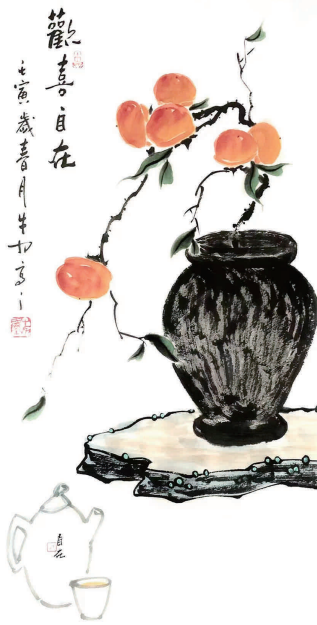 歡喜自在
壬寅歲春月牛
自在